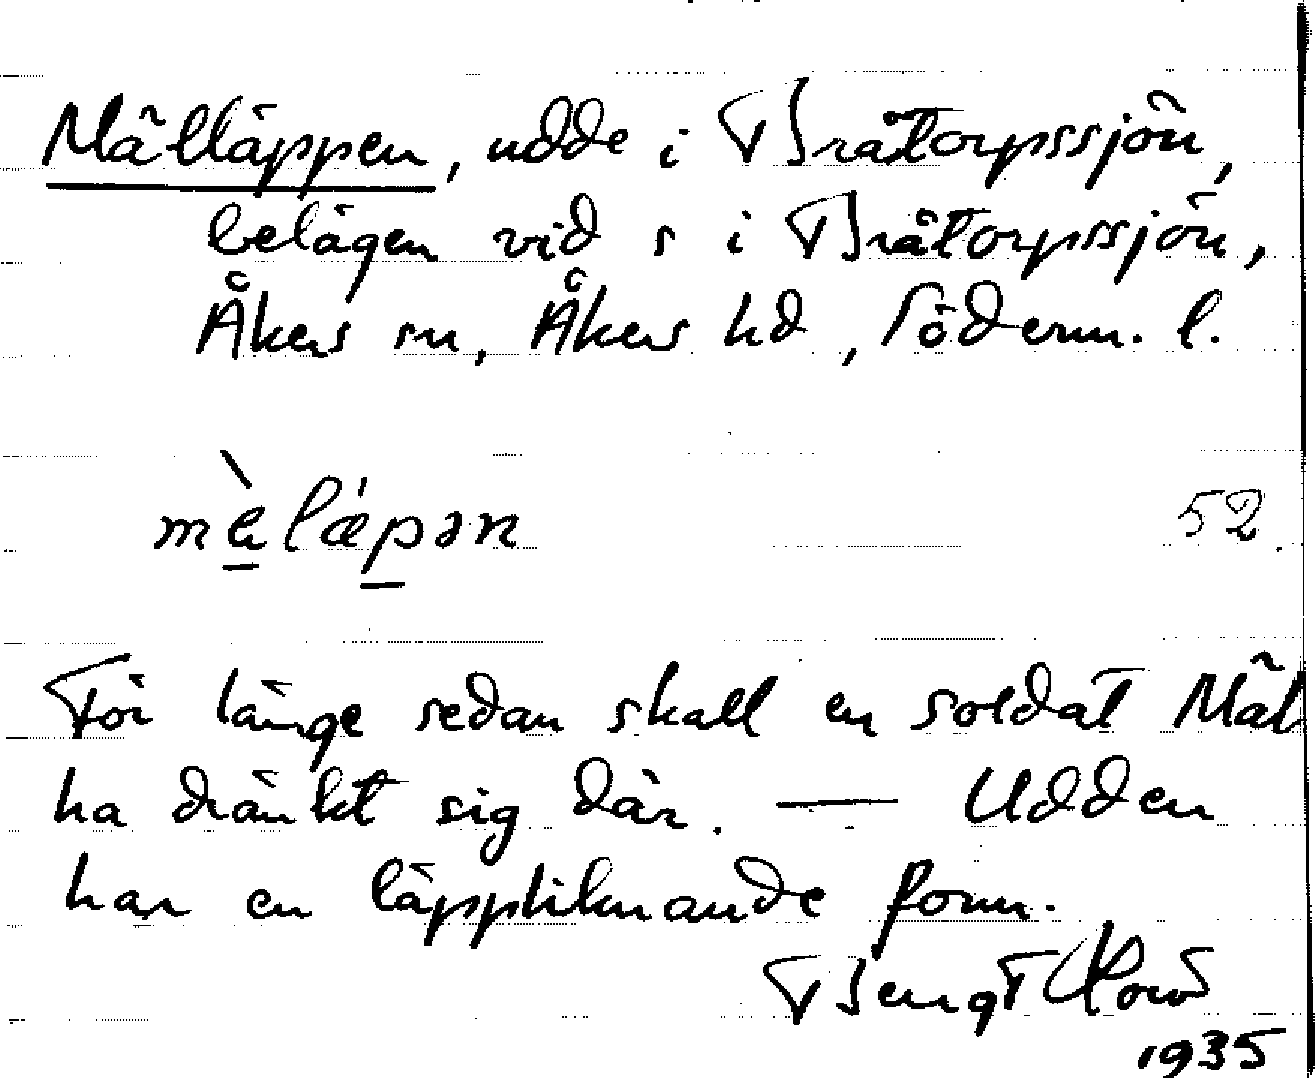 Målläppen, udde i Bråtorpssjön,
belägen vid s i Bråtorpssjön,
Åkers sn, Åkers hd, Söderm. l.
52.
För länge sedan skall en soldat Mål
ha dränkt sig där. — Udden
har en läppliknande form.
Bengt
1935